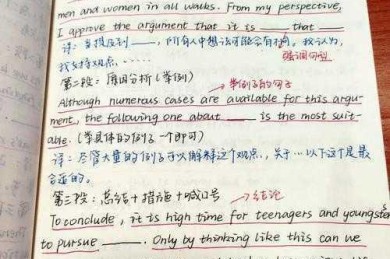 men and women in all walks. From my perspective,
I approve the argument that it is ____ that
译：当提及到____，所有人中想法可能会有不同，我认为，
我支持观点…… 强调句型
第二段：原因分析（举例） 举例子的句子
Although numerous cases are available for this argu-
ment, the following one about ____ is the most suit-
able. (举具体的例子 一个即可)
译：尽管大量的例子可以解释这个观点，关于…以下这个是最
合适的。
第三段：总结+措施+喊口号 结论
To conclude, it is high time for teenagers and youngsters
to pursue ____. Only by thinking like this can we